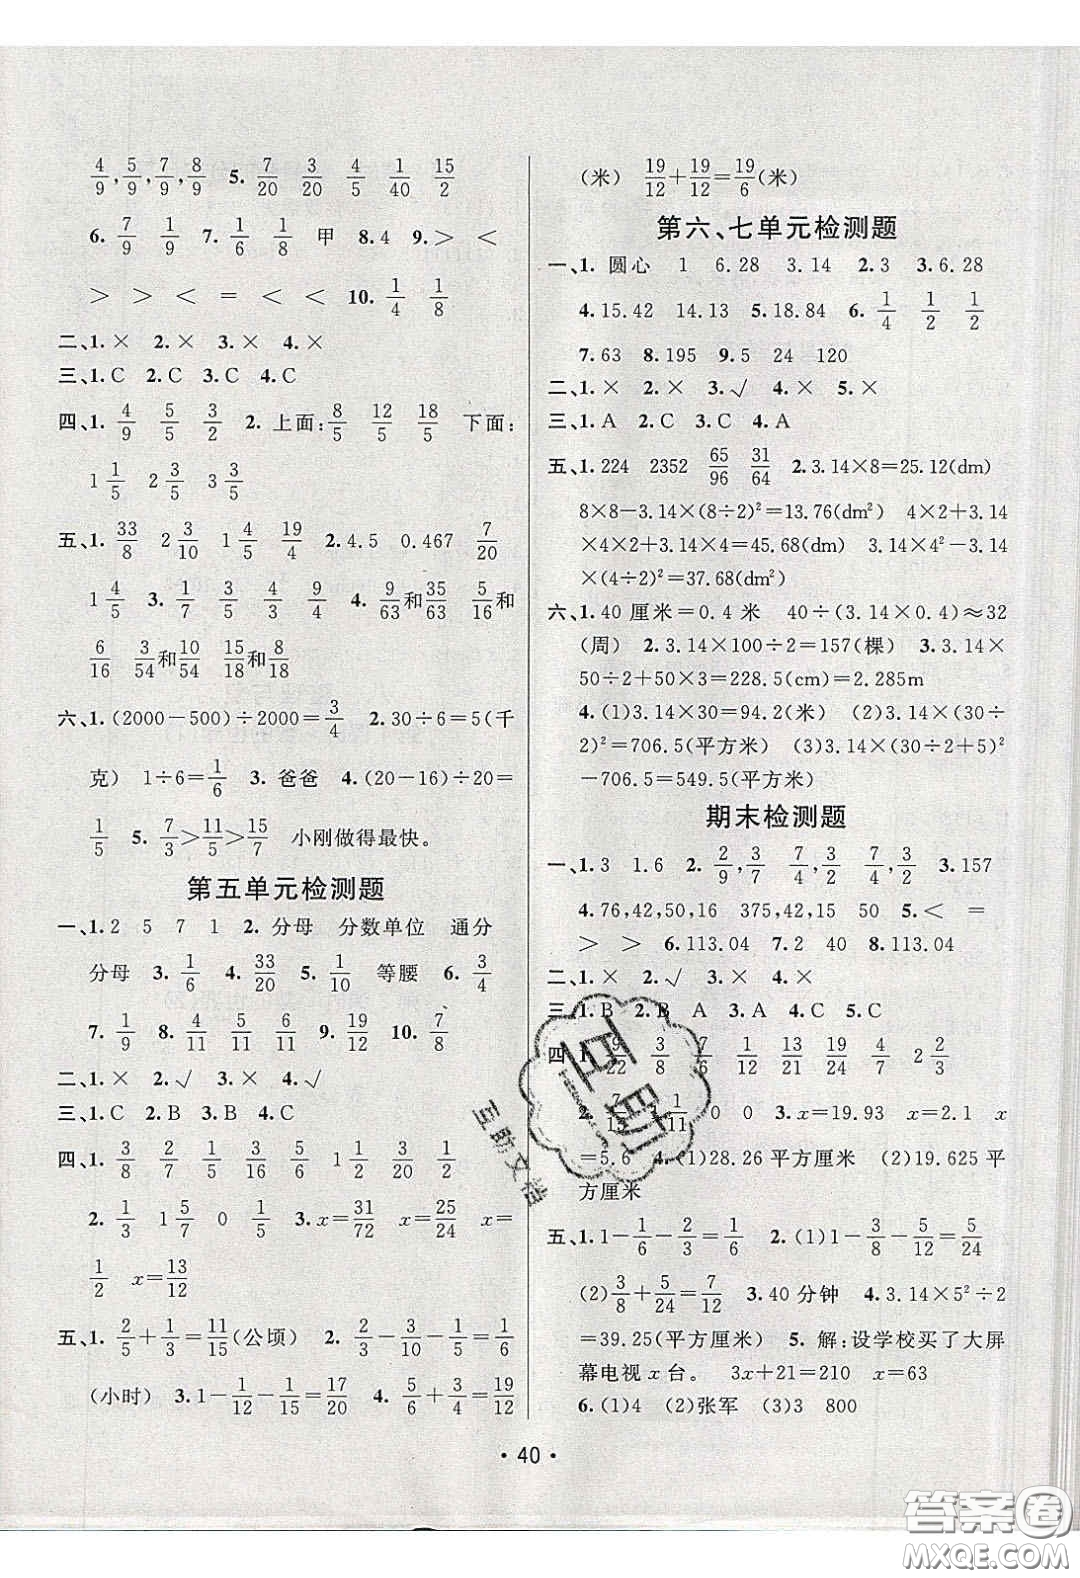 4/9, 5/9, 7/9, 8/9 5. 7/20 3/20 4/5 1/40 15/2
6. 7/9 1/9 7. 1/6 1/8 甲 8. 4 9. > <
> > < = < < 10. 1/4 1/8
二、1. × 2. × 3. × 4. ×
三、1. C 2. C 3. C 4. C
四、1. 4/9 5/5 3/2 2. 上面: 8/5 12/5 18/5 下面:
1 1/5 2 3/5 3 3/5
五、1. 33/8 2 3/10 1 4/5 19/4 2. 4.5 0.467 7/20
1 4/5 3. 1/7 3/5 4/3 9/4 4. 9/63和35/63 5/16和
6/16 3/54和10/54 15/18和8/18
六、1. (2000－500)÷2000＝3/4 2. 30÷6＝5(千
克) 1÷6＝1/6 3. 爸爸 4. (20－16)÷20＝
1/5 5. 7/3＞11/5＞15/7 小刚做得最快。
第五单元检测题
一、1. 2 5 7 1 2. 分母 分数单位 通分
分母 3. 1/6 4. 33/20 5. 1/10 等腰 6. 3/4
7. 1/9 8. 4/11 5/11 6/11 9. 19/12 10. 7/8
二、1. × 2. √ 3. × 4. √
三、1. C 2. B 3. B 4. C
四、1. 3/8 2/7 1/5 3/16 1 1/2 3/20 1/4
2. 1/3 1 5/7 0 1/5 3. x＝31/72 x＝25/24 x＝
1/2 x＝13/12
五、1. 2/5＋1/3＝11/15(公顷) 2. 2/3－3/10－1/5＝1/6
(小时) 3. 1－1/12－1/15＝17/20 4. 5/6＋3/4＝19/12
(米) 19/12＋19/12＝19/6(米)
第六、七单元检测题
一、1. 圆心 1 6.28 3.14 2. 3 3. 6.28
4. 15.42 14.13 5. 18.84 6. 1/4 1/2 1/2
7. 63 8. 195 9. 5 24 120
二、1. × 2. × 3. √ 4. × 5. ×
三、1. A 2. C 3. C 4. A
五、1. 224 2352 65/96 31/64 2. 3.14×8＝25.12(dm)
8×8－3.14×(8÷2)²＝13.76(dm²) 4×2＋3.14
×4×2＋3.14×4＝45.68(dm) 3.14×4²－3.14
×(4÷2)²＝37.68(dm²)
六、1. 40 厘米＝0.4 米 40÷(3.14×0.4)≈32
(周) 2. 3.14×100÷2＝157(棵) 3. 3.14×
50÷2＋50×3＝228.5(cm)＝2.285m
4. (1)3.14×30＝94.2(米) (2)3.14×(30÷
2)²＝706.5(平方米) (3)3.14×(30÷2＋5)²
－706.5＝549.5(平方米)
期末检测题
一、1. 3 1.6 2. 2/9, 3/7 7/4, 3/2 7/4, 3/2 3. 157
4. 76,42,50,16 375,42,15 50 5. < =
> > 6. 113.04 7. 2 40 8. 113.04
二、1. × 2. √ 3. × 4. × 5. ×
三、1. B 2. B A 3. A 4. C 5. C
四、 3/8 7/6 1/12 13/21 19/24 4/7 2 2/3
0 0 3. x＝19.93 x＝2.1 x
＝5.6 4. (1)28.26 平方厘米 (2)19.625 平
方厘米
五、1. 1－1/6－2/3＝1/6 2. (1)1－3/8－5/12＝5/24
(2)3/8＋5/24＝7/12 3. 40 分钟 4. 3.14×5²÷2
＝39.25(平方厘米) 5. 解:设学校买了大屏
幕电视 x 台。 3x＋21＝210 x＝63
6. (1)4 (2)张军 (3)3 800
· 40 ·
互助
互助文档
答案圈
MXQE.COM